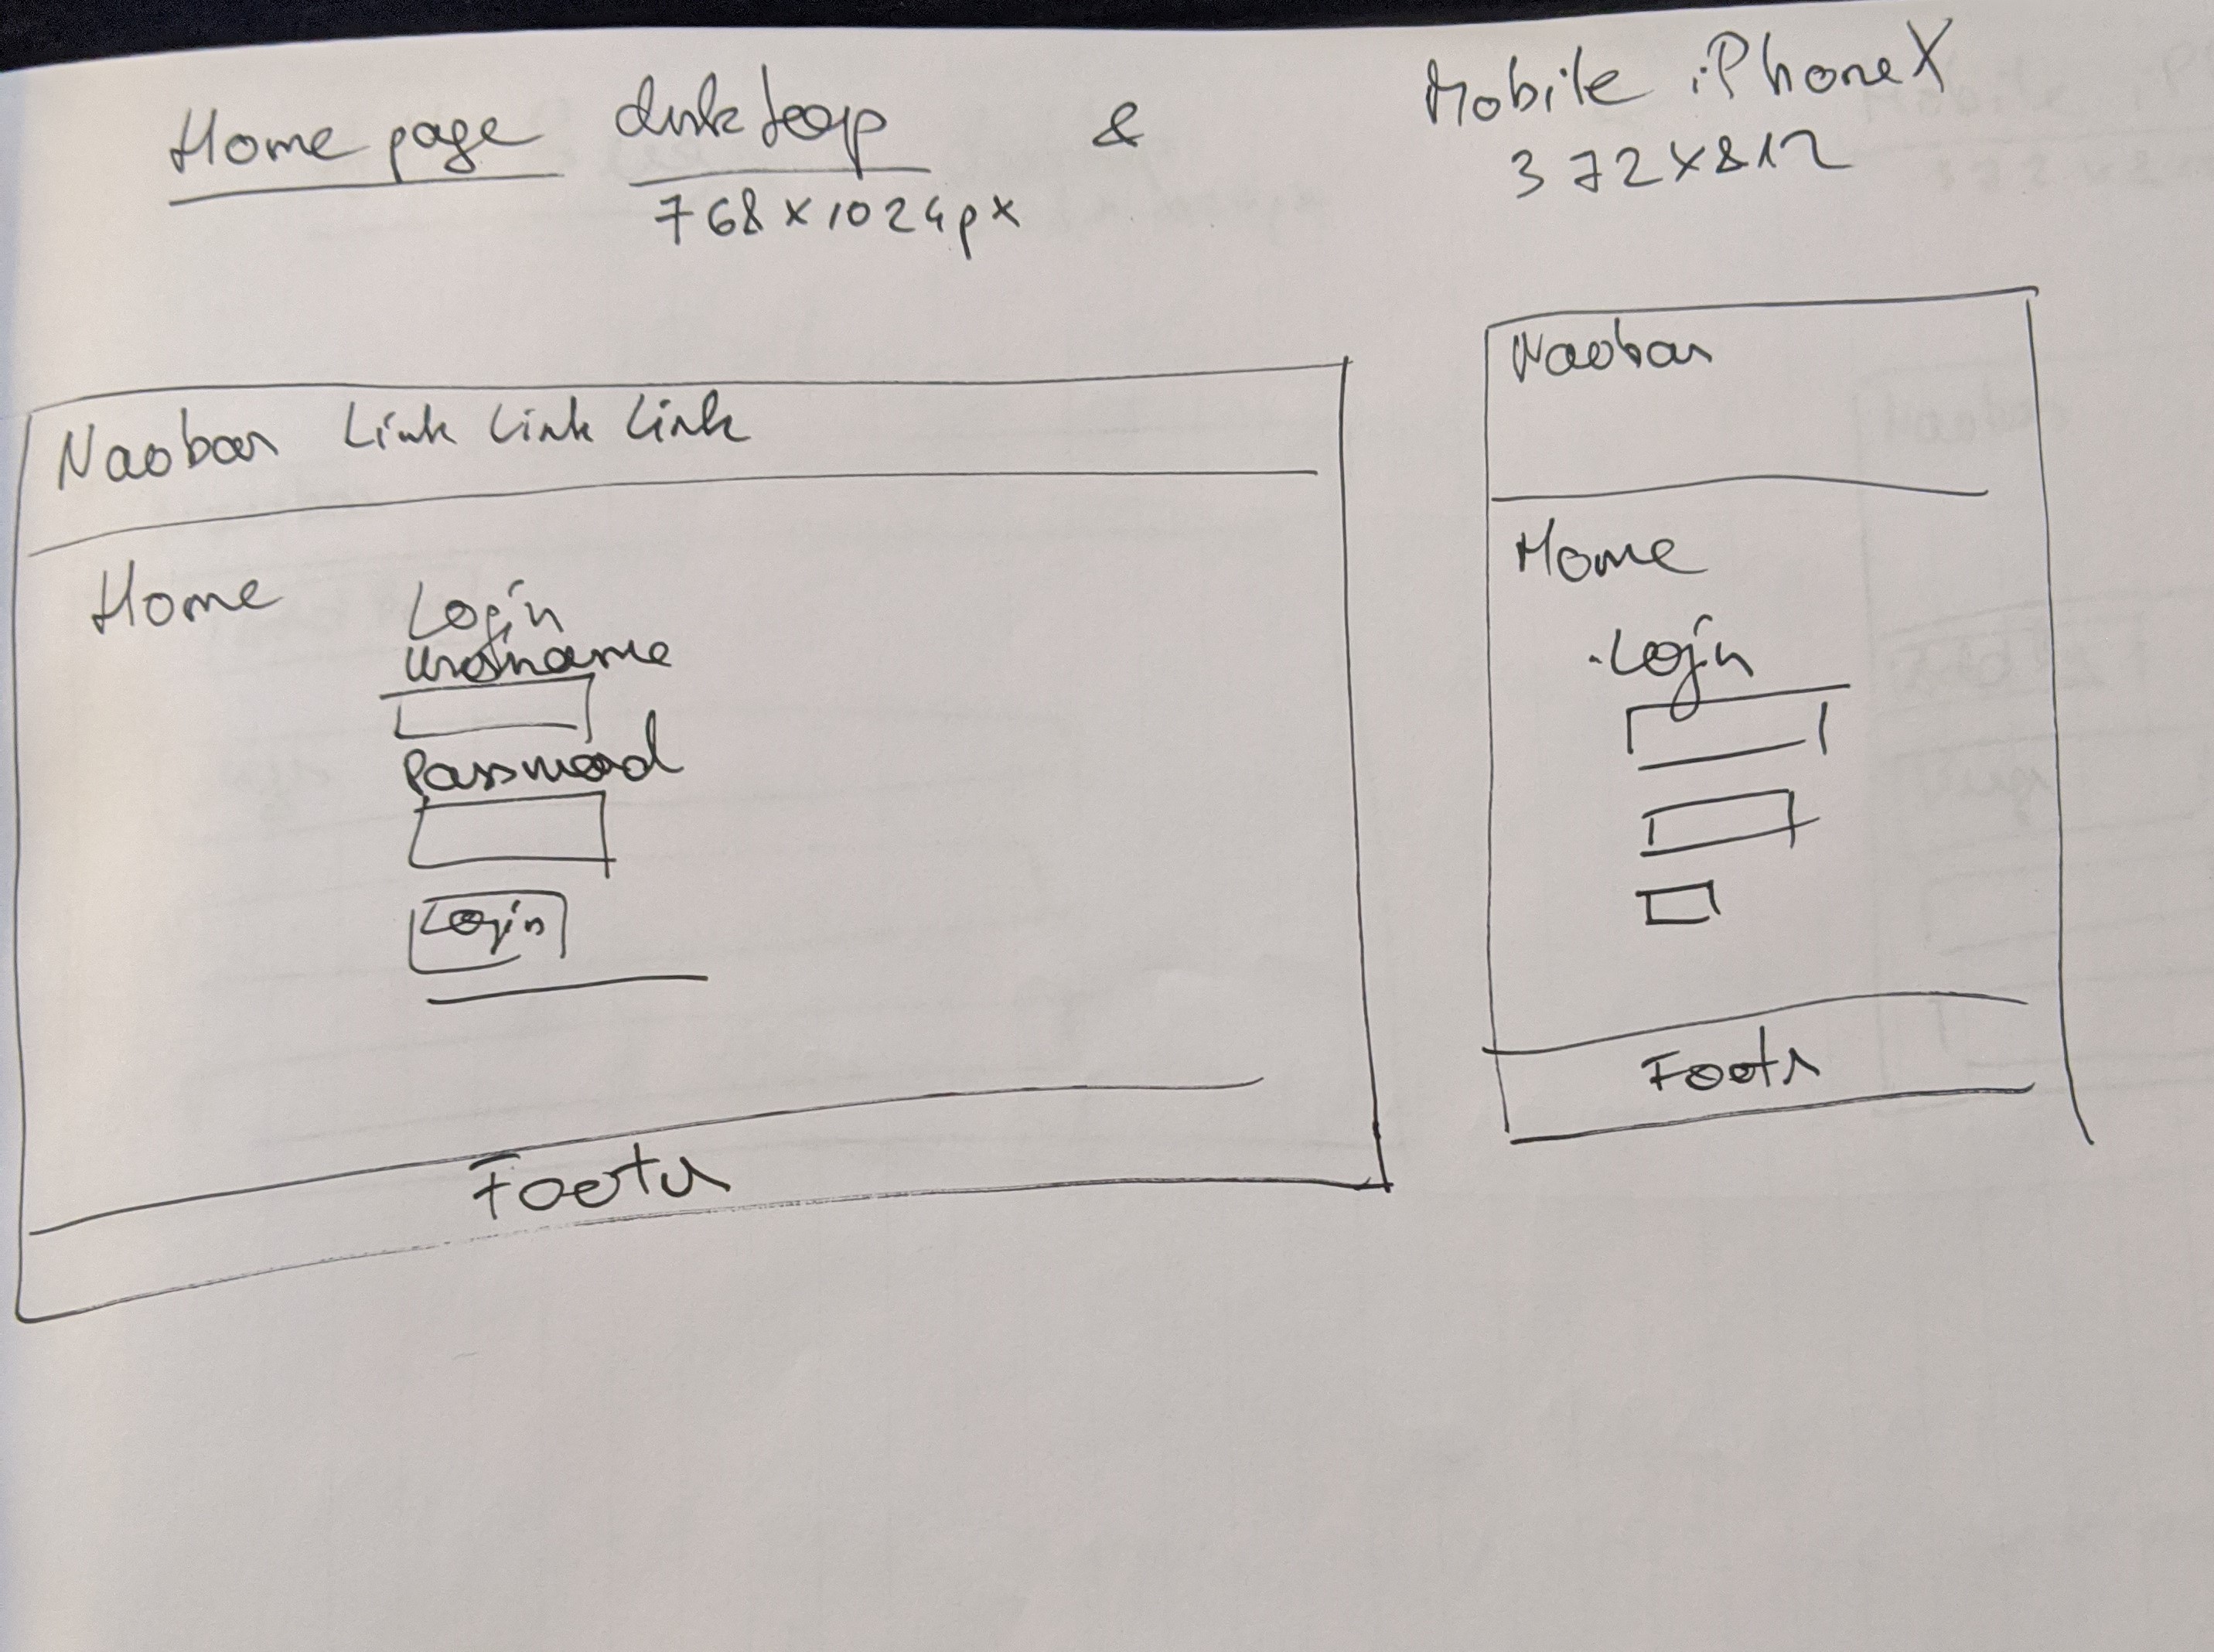 Home page desktoop & Mobile iPhone X
768x1024px
372x812
Navbar Link Link Link
Home
Login
Username
Password
Login
Footer
Navbar
Home
Login
Footer